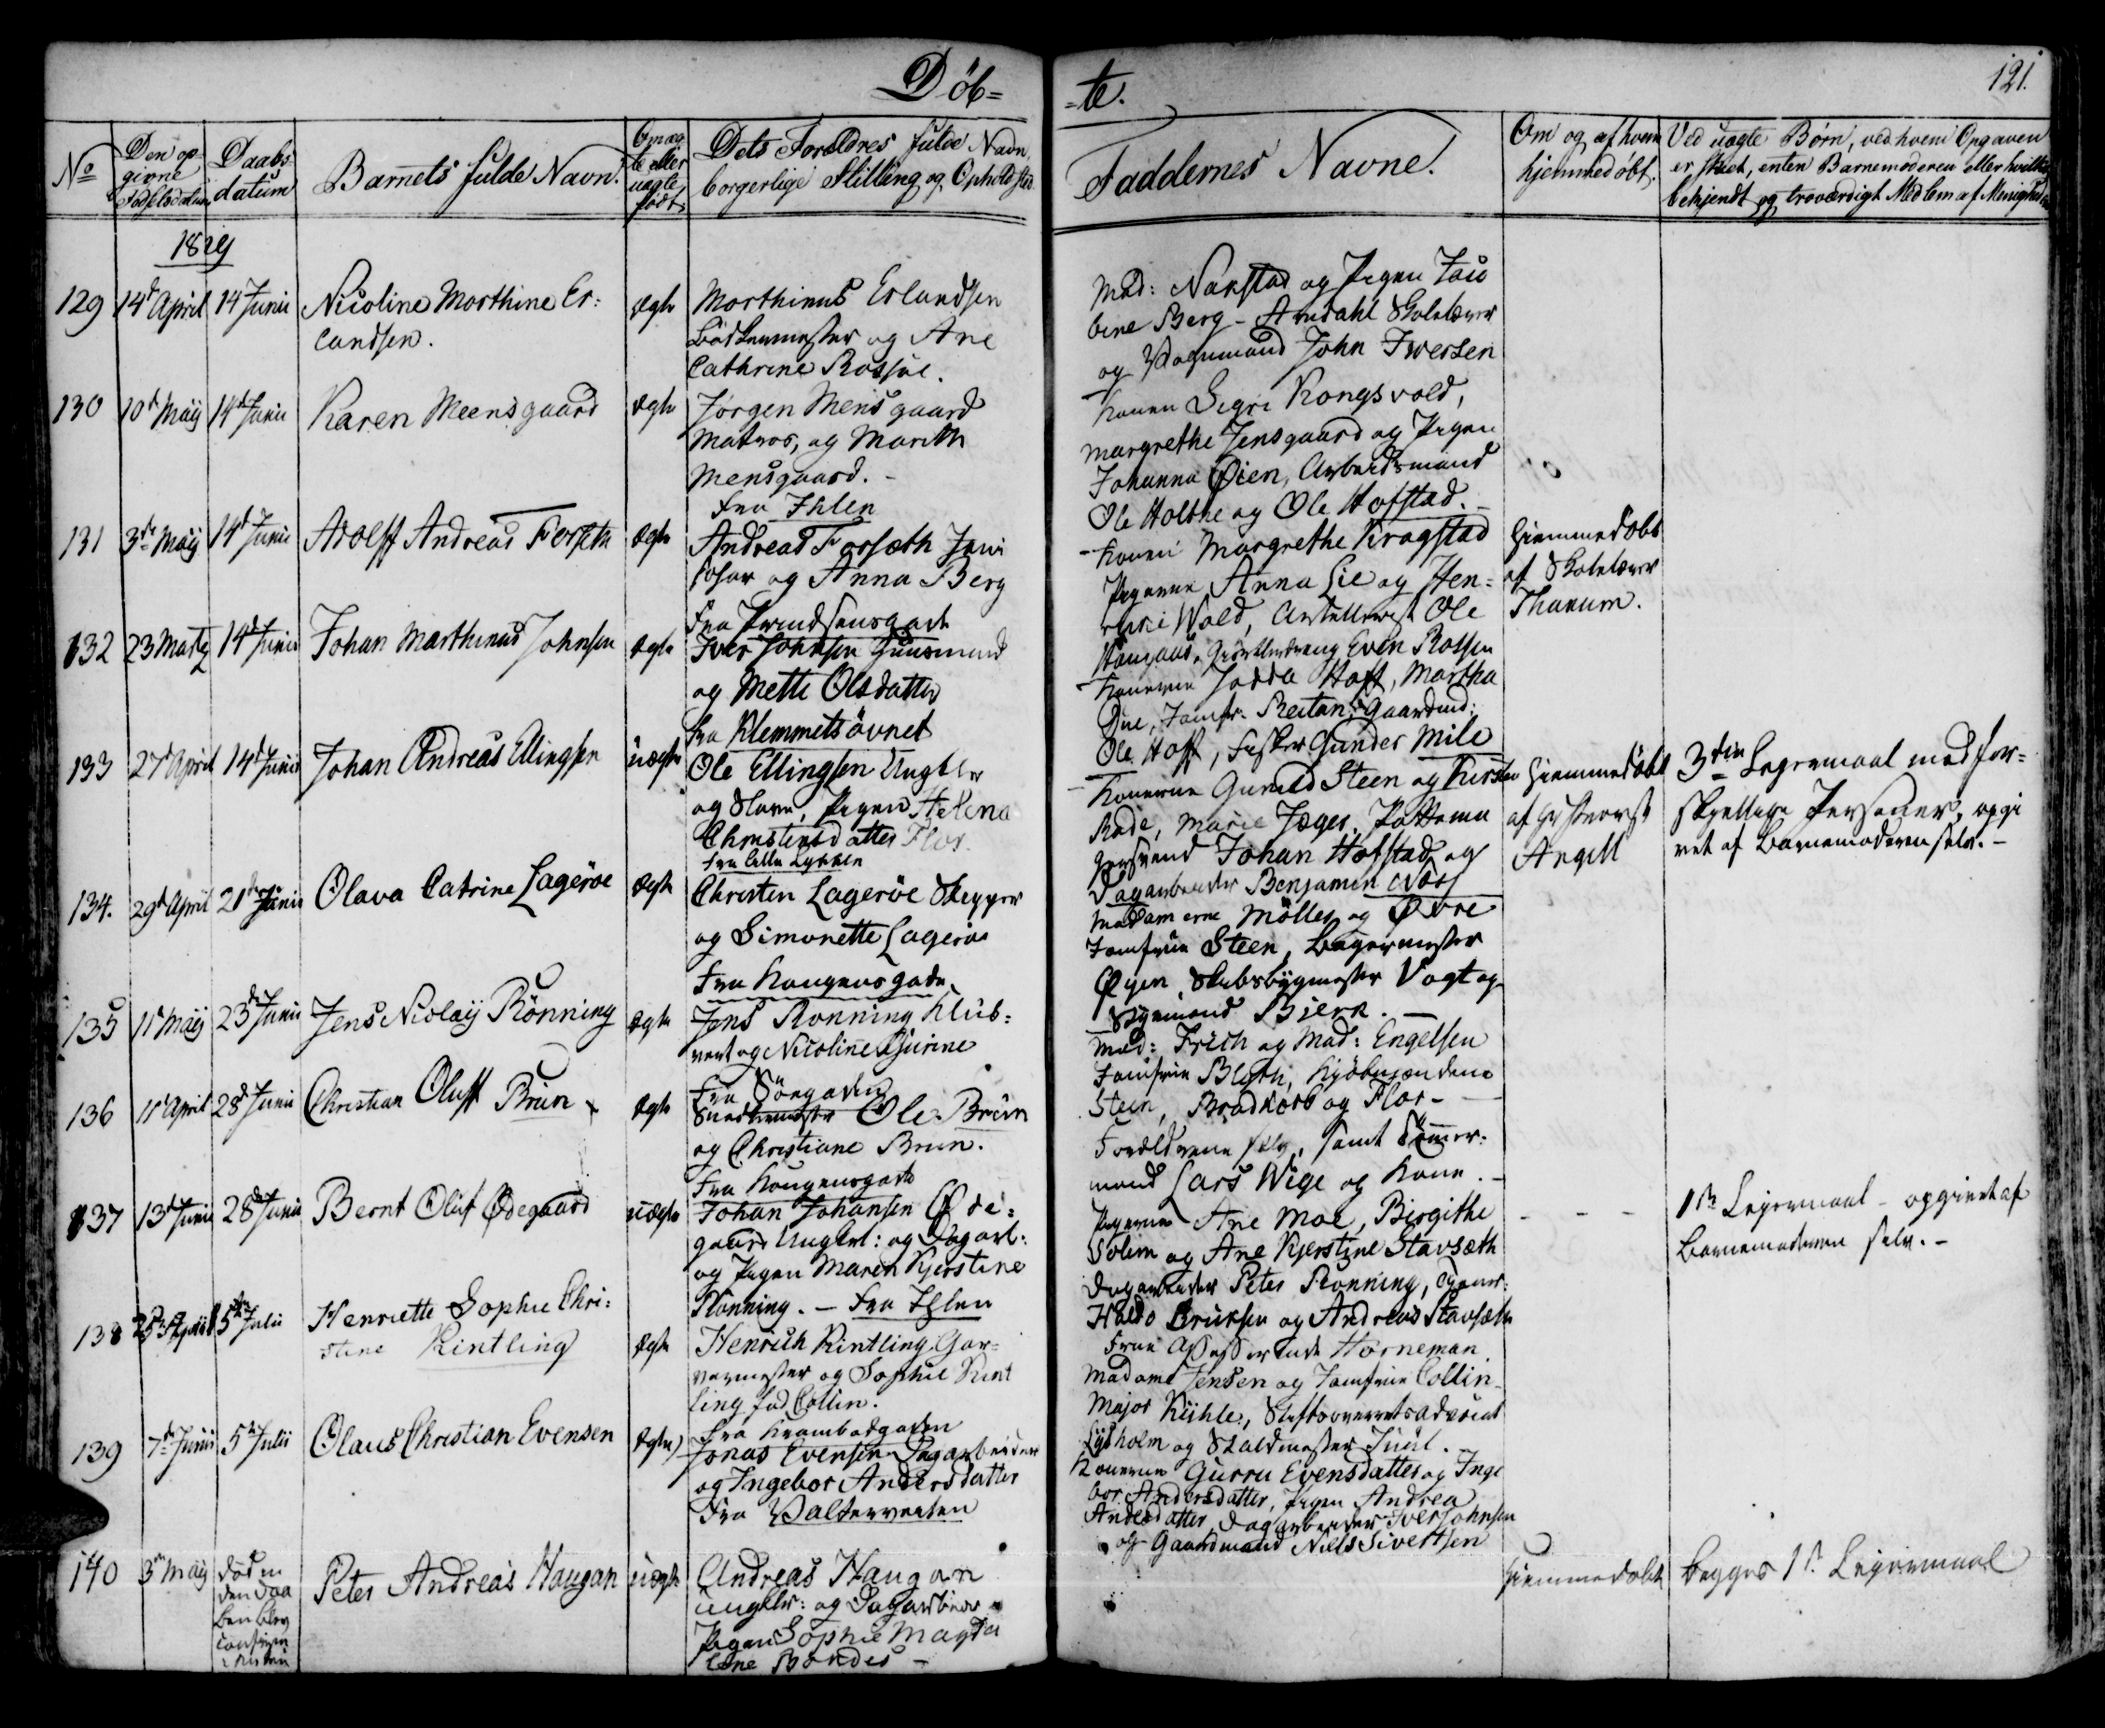 Döb=
=te.
121.
No
Den op-
givne
Fødselsdatum
Daabs-
datum
Barnets fulde Navn.
Om æg-
te eller
uægte
født.
Dets Forældres fulde Navn,
borgerlige Stilling og Opholdsted
Faddernes Navne.
Om og af hvem
hjemmedøbt.
Ved uægte Børn, ved hvem Opgaven
er skeet, enten Barnemoderen eller hvilket
bekjendt og troværdigt Medlem af Menigheden
1829
129
14d April
14 Junii
Nicoline Morthine Er=
landsen.
ægte
Morthinus Erlandsen
Bødkermester og Ane
Cathrine Rossøe.
Mad: Nanstad og Pigen Jaco
bine Berg - Arndahl Skolelærer
og Vognmand John Iversen
130
10d Maij
14d Junii
Karen Meensgaard
ægte
Jørgen Mensgaard
Matros, og Marith
Mensgaard. -
Fra Ihlen
Konen Sigri Kongsvold,
Margrethe Jensgaard og Pigen
Johanna Øien, Arbeidsmand
Ole Holthe og Ole Hofstad. -
131
3de Maij
14d Junii
Adolff Andreas Forseth
ægte
Andreas Forsæth
og Anna Berg
Fra Prindsensgade
Konen Margrethe Kragstad
Pigerne Anna Lie og Hen=
Wold, Ole
Even Rossen
Hiemmedøbt
af Skolelærer
Thanum.
132
23 Martz
14d Junii
Johan Marthinus Johnsen
ægte
Iver Johnsen Huusmand
og Mette Olsdatter
fra Klemmetsövnet
Konerne Jodda Hoff, Martha
Øue, Jomfr. Reitan, Gaardmd:
Ole Hoff, Fisker Gunder Mile
133
27d April
14d Junii
Johan Andreas Ellingsen
uægte
Ole Ellingsen Ungkbr
og Slave, Pigen Helena
Christensdatter Flor.
Fra Lille Lykken
Konerne Gunild Steen og Kirsten
Rode, Marie Jæger, Pottema
gersvend Johan Hofstad og
Dagarbeider Benjamin Næss
Hiemmedøbt
af
Angell
3die Legermaal med for=
skjellige Personer, opgi
vet af Barnemoderen selv. -
134.
29d April
21de Junii
Olava Catrine Lagerøe
ægte
Christen Lagerøe Skipper
og Simonette Lagerøe
Fra Kongensgade
Madamerne Möller og Øvre
Jomfrue Steen, Bagermester
Øyen, Skibsbygmester Vogt og
Styrmand Bierk. -
135
11d Maij
23d Junii
Jens Nicolaij Rönning
ægte
Jens Rönning Klub=
vert og Nicoline Djurine
Fra Söegaden
Mad: Frich og Mad: Engelsen
Jomfrue Blyth, Kjöbmændene
Steen, Bradvorb og Flor -
136
11d April
28d Junii
Christian Oluff Brun
ægte
Snedkermester Ole Brun
og Christiane Brun.
Fra Kongensgade
Forældrene selv, samt Tömmer=
mand Lars Wige og Kone. -
137
13d Junii
28de Junii
Bernt Oluf Ødegaard
uægte
Johan Johansen Øde=
gaard Ungkrl: og Dagarb:
og Pigen Maren Kjerstine
Rönning. - Fra Ihlen
Pigerne Ane Moe, Birgithe
Solem og Ane Kjerstine Stavsæth
Dagarbeider Peter Rönning,
Haldo Eriksen og Andreas Stavsæth
- - -
1te Leiermaal - opgivet af
Barnemoderen selv. -
138
25de April
5te Julii
Henriette Sophie Chri=
stine Kintling
ægte
Henrich Kintling Gar=
vermester og Sophie Kint
ling fød Collin.
Fra Krambodgaden
Frue Assessorinde Horneman
Madame Jensen og Jomfrue Collin -
Major Kühle, Stiftsoverretsadvocat
Lysholm og Staldmester Juul. -
139
7de Junii
5te Julii
Olaus Christian Evensen
ægte
Jonas Evensen Dagarbeider
og Ingebor Andersdatter
Fra Valterveiten
Konerne Gurru Evensdatter og Inge
bor Andersdatter, Pigen Andrea
Andersdatter, Dagarbeider Iver Johnsen
og Gaardmand Niels Sivertsen
140
3de Maij
død in
den Daa
ben blev
Peter Andreas Haugan
uægte
Andreas Haugan
ungkbr: og Dagarbeider
Pigen Sophie Magda
lene Bordes -
Hiemmedøbt
begges 1te Leiermaal